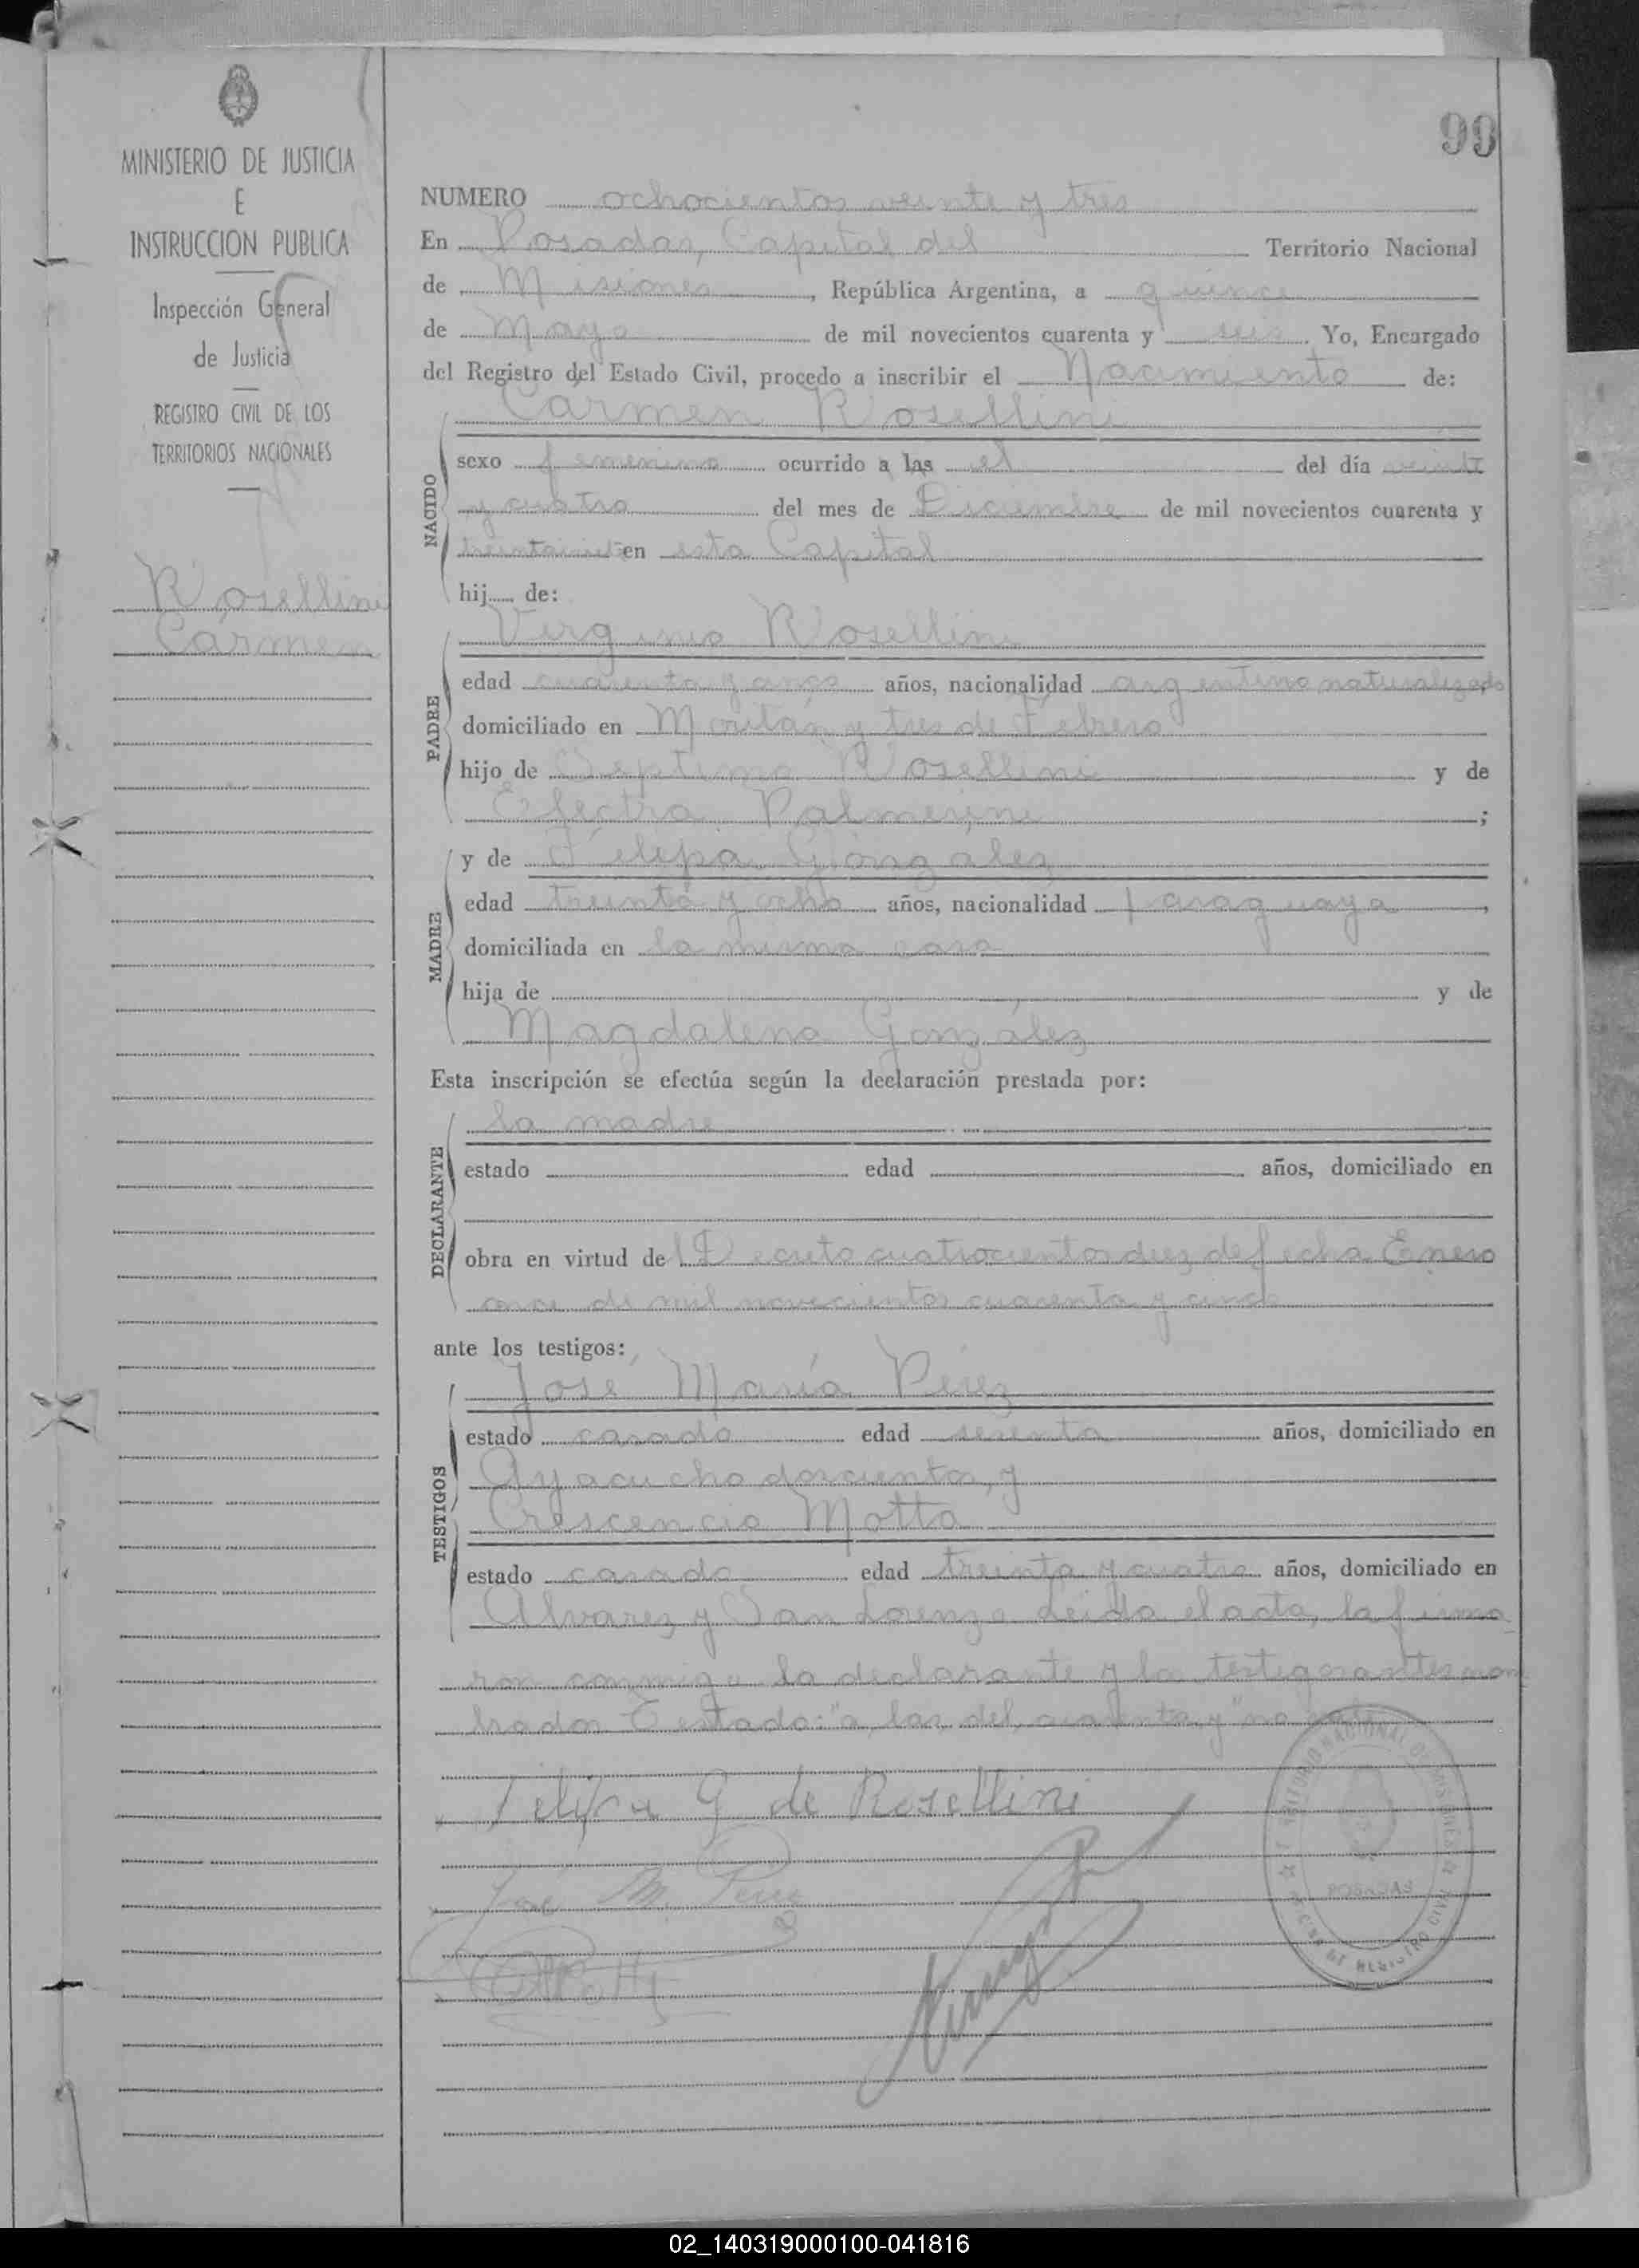 99
MINISTERIO DE JUSTICIA
E
INSTRUCCION PUBLICA
Inspección General
de Justicia
REGISTRO CIVIL DE LOS
TERRITORIOS NACIONALES
Rosellini
Carmen
NUMERO ochocientos veinte y tres
En Posadas, Capital del Territorio Nacional
de Misiones, República Argentina, a quince
de Mayo de mil novecientos cuarenta y seis. Yo, Encargado
del Registro del Estado Civil, procedo a inscribir el Nacimiento de:
NACIDO
Carmen Rosellini
sexo femenino ocurrido a las el del día veinte
y cuatro del mes de Diciembre de mil novecientos cuarenta y
en esta Capital
hij de:
PADRE
Virginio Rosellini
edad cuarenta y años, nacionalidad argentino naturalizado
domiciliado en Moritán y tres de Febrero
hijo de Septimo Rosellini y de
Electra Palmerini;
MADRE
y de Felipa González
edad treinta y ocho años, nacionalidad paraguaya,
domiciliada en la misma casa
hija de y de
Magdalena González
Esta inscripción se efectúa según la declaración prestada por:
DECLARANTE
la madre
estado edad años, domiciliado en
obra en virtud de l Decreto cuatrocientos diez de fecha Enero
once de mil novecientos cuarenta y cinco
ante los testigos:
TESTIGOS
José María Pérez
estado casado edad sesenta años, domiciliado en
Ayacucho doscientos y
Crescencio Motta
estado casado edad treinta y cuatro años, domiciliado en
Alvarez y San Lorenzo Leida el acta, la firma
ron conmigo la declarante y los testigos antes nom
brados E estado: "a las, del, cuarenta y" no vale
Felipa G de Rosellini
José M. Perez
POSADAS
02_140319000100-041816